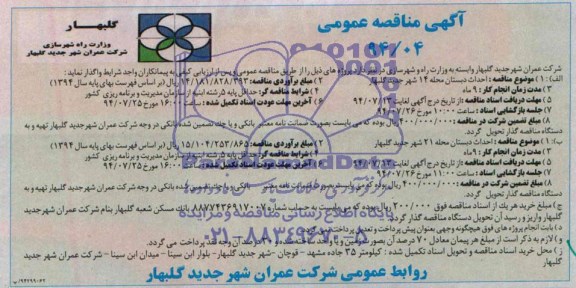 آگهی مناقصه عمومی
۹۴/۰۴
گلبهار
وزارت راه و شهرسازی
شرکت عمران شهر جدید گلبهار
شرکت عمران شهر جدید گلبهار وابسته به وزارت راه و شهرسازی در نظر دارد پروژه های ذیل را از طریق مناقصه عمومی و پس از ارزیابی کیفی به پیمانکاران واجد شرایط واگذار نماید:
الف: ۱) موضوع مناقصه: احداث دبستان محله ۱۴ شهر جدید گلبهار ۲) مبلغ برآوردی مناقصه: ۱۴/۱۸۱/۸۲۸/۳۹۳ ریال (بر اساس فهرست بهای پایه سال ۱۳۹۴)
۳) مدت زمان انجام کار: ۹ ماه ۴) شرایط مناقصه گر: حداقل پایه ۵ رشته ابنیه از سازمان مدیریت و برنامه ریزی کشور
۵) مهلت دریافت اسناد مناقصه: از تاریخ درج آگهی لغایت ۹۴/۰۷/۱۳ ۶) آخرین مهلت عودت اسناد تکمیل شده: ساعت ۱۶:۰۰ مورخ ۹۴/۰۷/۲۵
۷) جلسه بازگشایی اسناد: ساعت ۱۰:۰۰ مورخ ۹۴/۰۷/۲۶
۸) مبلغ تضمین شرکت در مناقصه: ۴۰۰/۰۰۰/۰۰۰ ریال بوده که می بایست بصورت ضمانت نامه معتبر بانکی و یا چک تضمین شده بانکی در وجه شرکت عمران شهر جدید گلبهار تهیه و به
دستگاه مناقصه گذار تحویل گردد.
ب: ۱) موضوع مناقصه: احداث دبستان محله ۲۱ شهر جدید گلبهار ۲) مبلغ برآوردی مناقصه: ۱۵/۱۰۴/۲۵۳/۸۶۵ ریال (بر اساس فهرست بهای پایه سال ۱۳۹۴)
۳) مدت زمان انجام کار: ۹ ماه ۴) شرایط مناقصه گر: حداقل پایه ۵ رشته ابنیه از سازمان مدیریت و برنامه ریزی کشور
۵) مهلت دریافت اسناد مناقصه: از تاریخ درج آگهی لغایت ۹۴/۰۷/۱۳ ۶) آخرین مهلت عودت اسناد تکمیل شده: ساعت ۱۶:۰۰ مورخ ۹۴/۰۷/۲۵
۷) جلسه بازگشایی اسناد: ساعت ۱۱:۰۰ مورخ ۹۴/۰۷/۲۶
۸) مبلغ تضمین شرکت در مناقصه: ۴۰۰/۰۰۰/۰۰۰ ریال بوده که می بایست بصورت ضمانت نامه معتبر بانکی و یا چک تضمین شده بانکی در وجه شرکت عمران شهر جدید گلبهار تهیه و به
دستگاه مناقصه گذار تحویل گردد.
ج) مبلغ خرید هر یک از اسناد مناقصه فوق ۲۰۰/۰۰۰ ریال بوده که می بایست به حساب شماره ۸۸۷۷۴۳۶۹۱۷۰۰۷ بانک مسکن شعبه گلبهار بنام شرکت عمران شهر جدید
گلبهار واریز و رسید آن تحویل دستگاه مناقصه گذار گردد.
د) بابت انجام پروژه های فوق هیچگونه وجهی بعنوان پیش پرداخت و تعدیل پرداخت نمی گردد.
و) لازم به ذکر است از مبلغ هر پیمان معادل ۷۰ درصد آن بصورت زمین و یا واحد ساخته شده و ۳۰ درصد آن وجه نقد پرداخت می گردد.
ز) محل خرید اسناد مناقصه و تحویل اسناد تکمیل شده: کیلومتر ۳۵ جاده مشهد - قوچان - شهر جدید گلبهار - بلوار ابن سینا - میدان ابن سینا - شرکت عمران شهر جدید
گلبهار
روابط عمومی شرکت عمران شهر جدید گلبهار
پایگاه اطلاع رسانی مناقصه و مزایده
۰۲۱-۸۸۳۴۹۶۷۰-۵
۹۴۲۹۹۰۶۲/پ